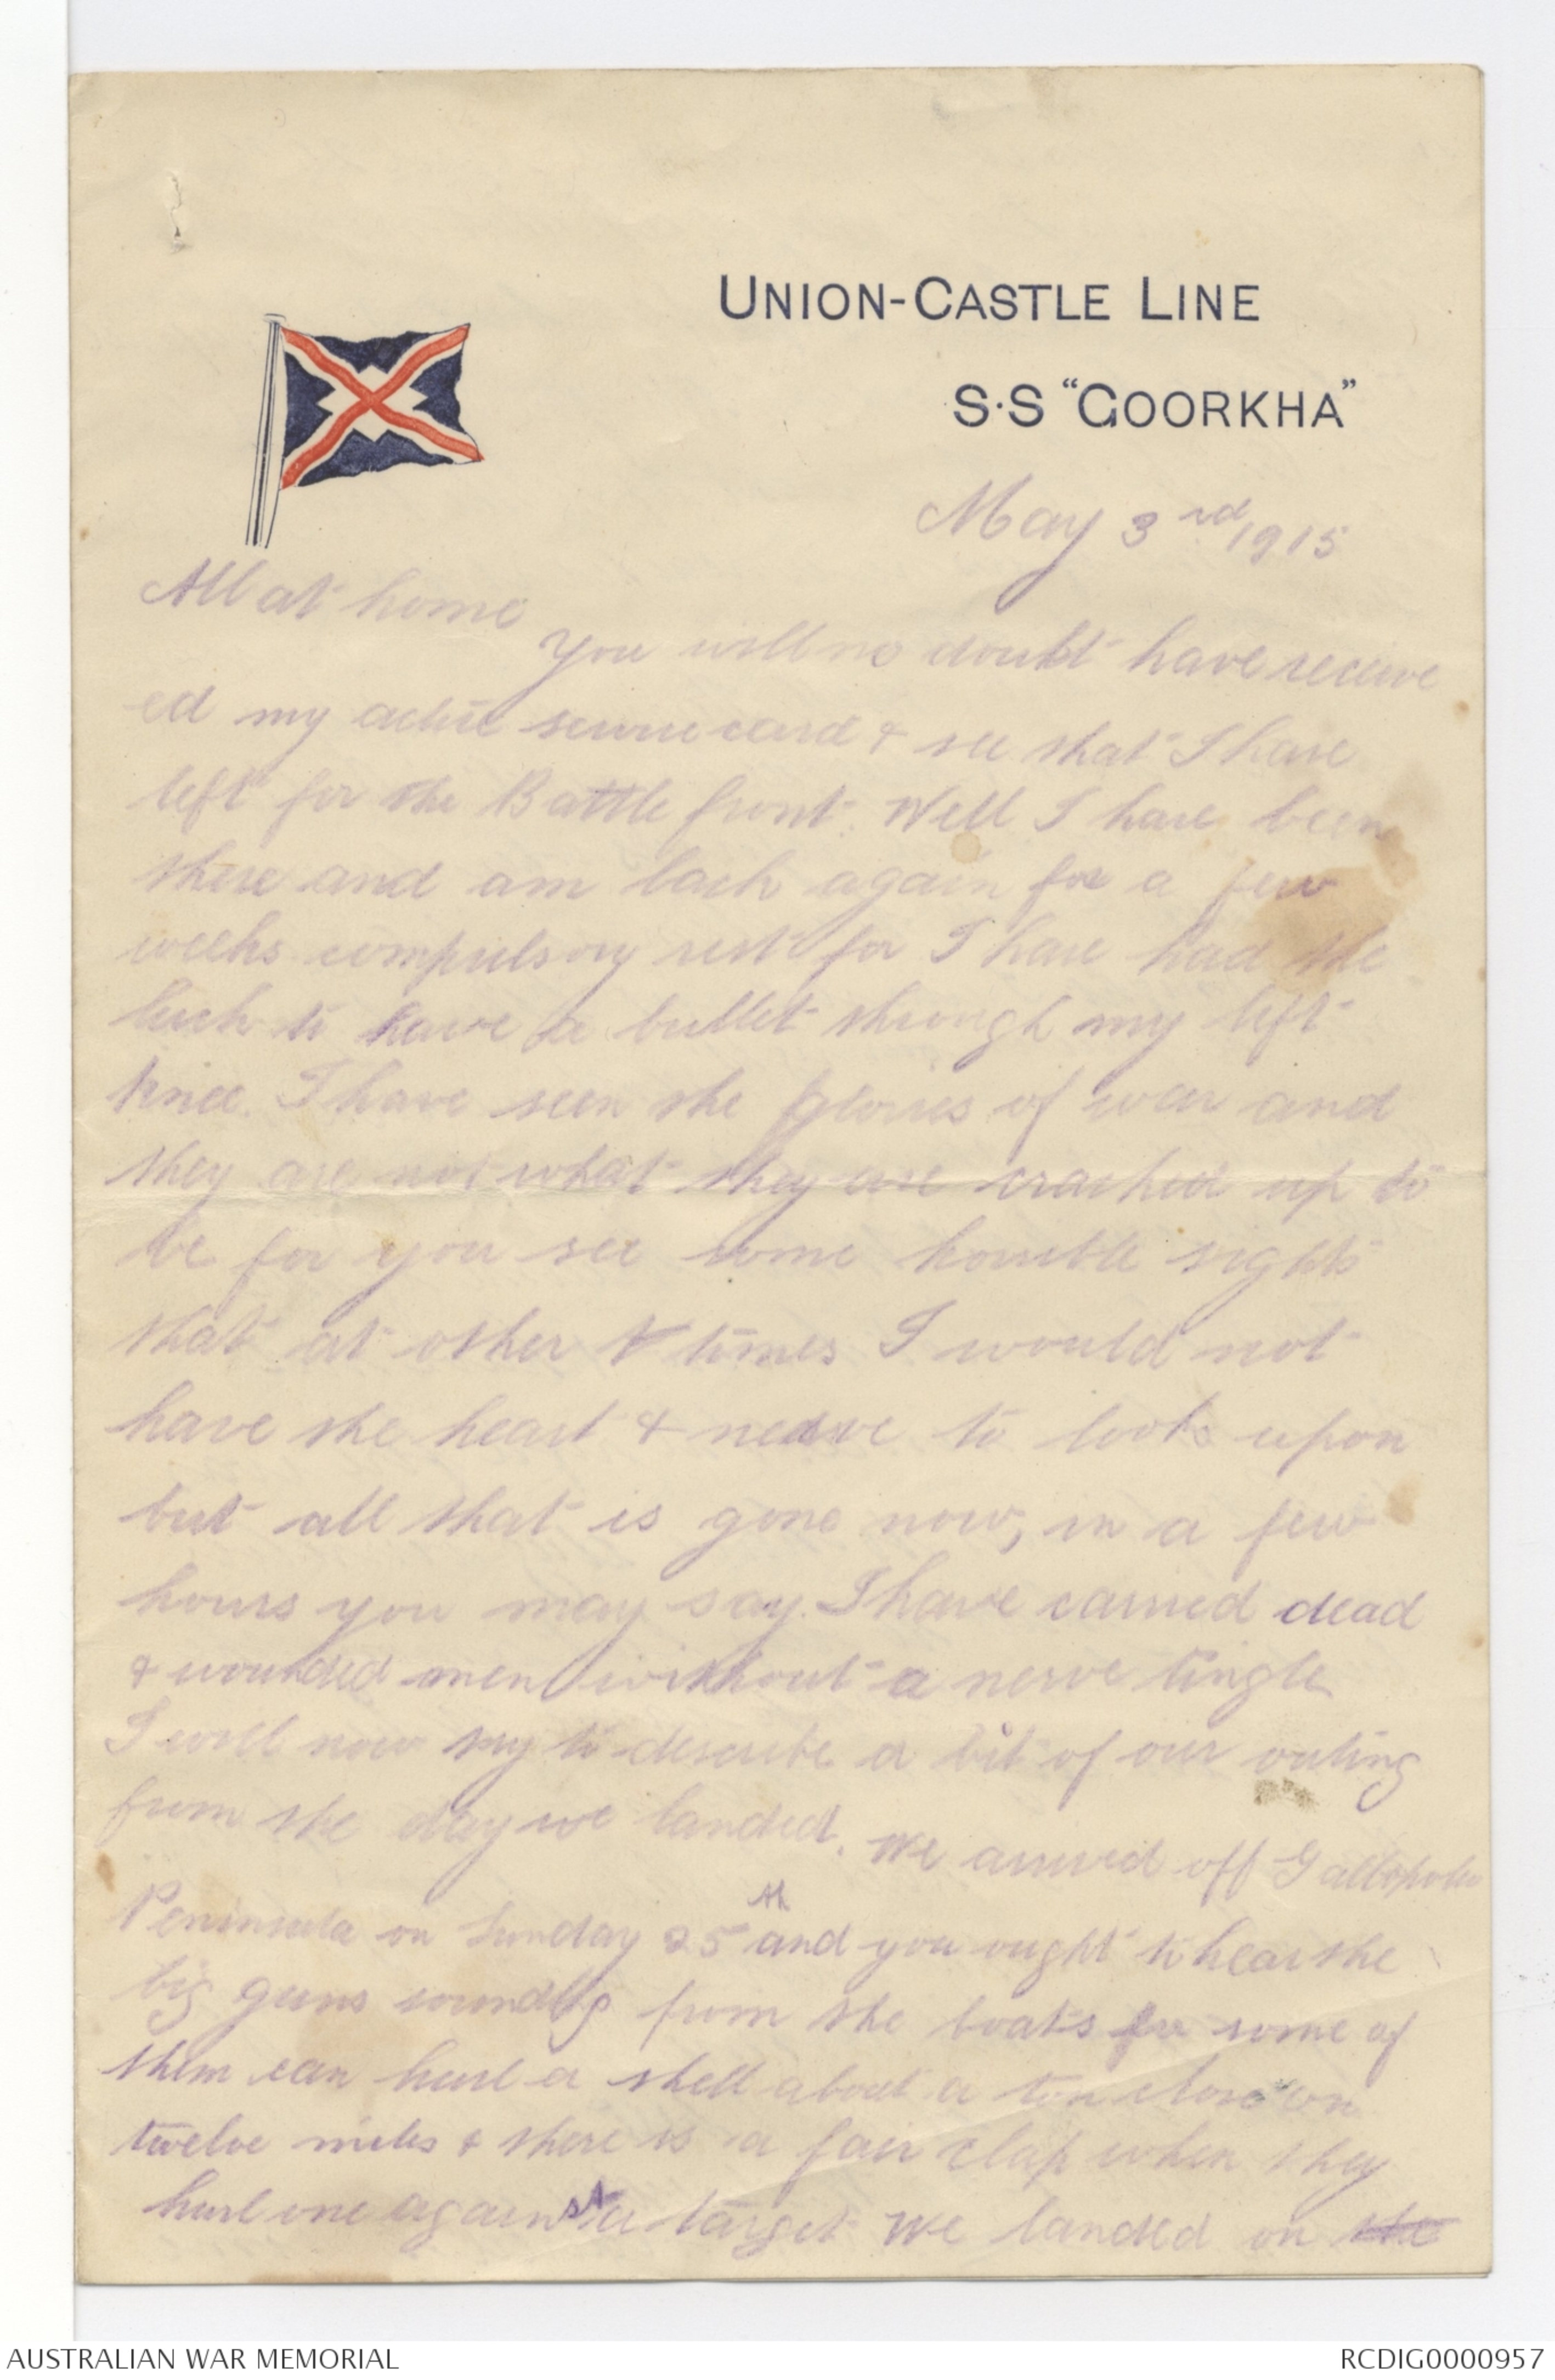 UNION-CASTLE LINE
S.S "GOORKHA"
May 3rd 1915
All at home
You will no doubt have receive
ed my active service card & see that I have
left for the Battle front. Well I have been
there and am back again for a few
weeks compulsory rest for I have had the
luck to have a bullet through my left
knee. I have seen the glories of war and
they are not what they are cracked up to
be for you see some horrible sights
that at other times I would not
have the heart & nerve to look upon
but all that is gone now, in a few
hours you may say. I have carried dead
& wounded men without a nerve tingle
I will now try to describe a bit of our outing
from the day we landed. We arrived off Gallipoli
Peninsula on Sunday 25th and you ought to hear the
big guns sounding from the boats for some of
them can hurl a shell about a ton close on
twelve miles & there is a fair clap when they
hurl one against a target We landed on the
AUSTRALIAN WAR MEMORIAL
RCDIG0000957